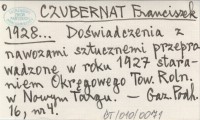 CZUBERNAT Franciszek
1928... Doświadczenia z
nawozami sztucznemi przepro
wadzone w roku 1927 stara-
niem Okręgowego Tow. Roln.
w Nowym Targu. — Gaz. Podh.
16, nr 4.
bt/010/0071